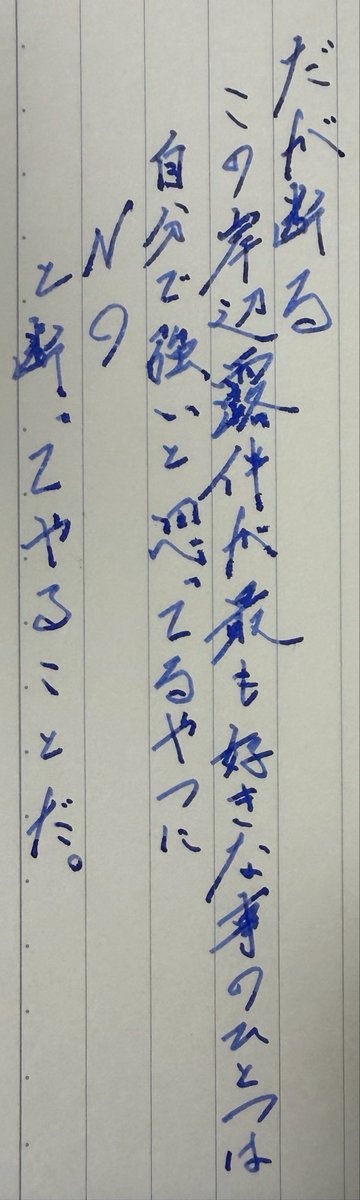 だが断る
この岸辺露伴が最も好きな事のひとつは
自分で強いと思ってるやつに
Nの
と断ってやることだ。